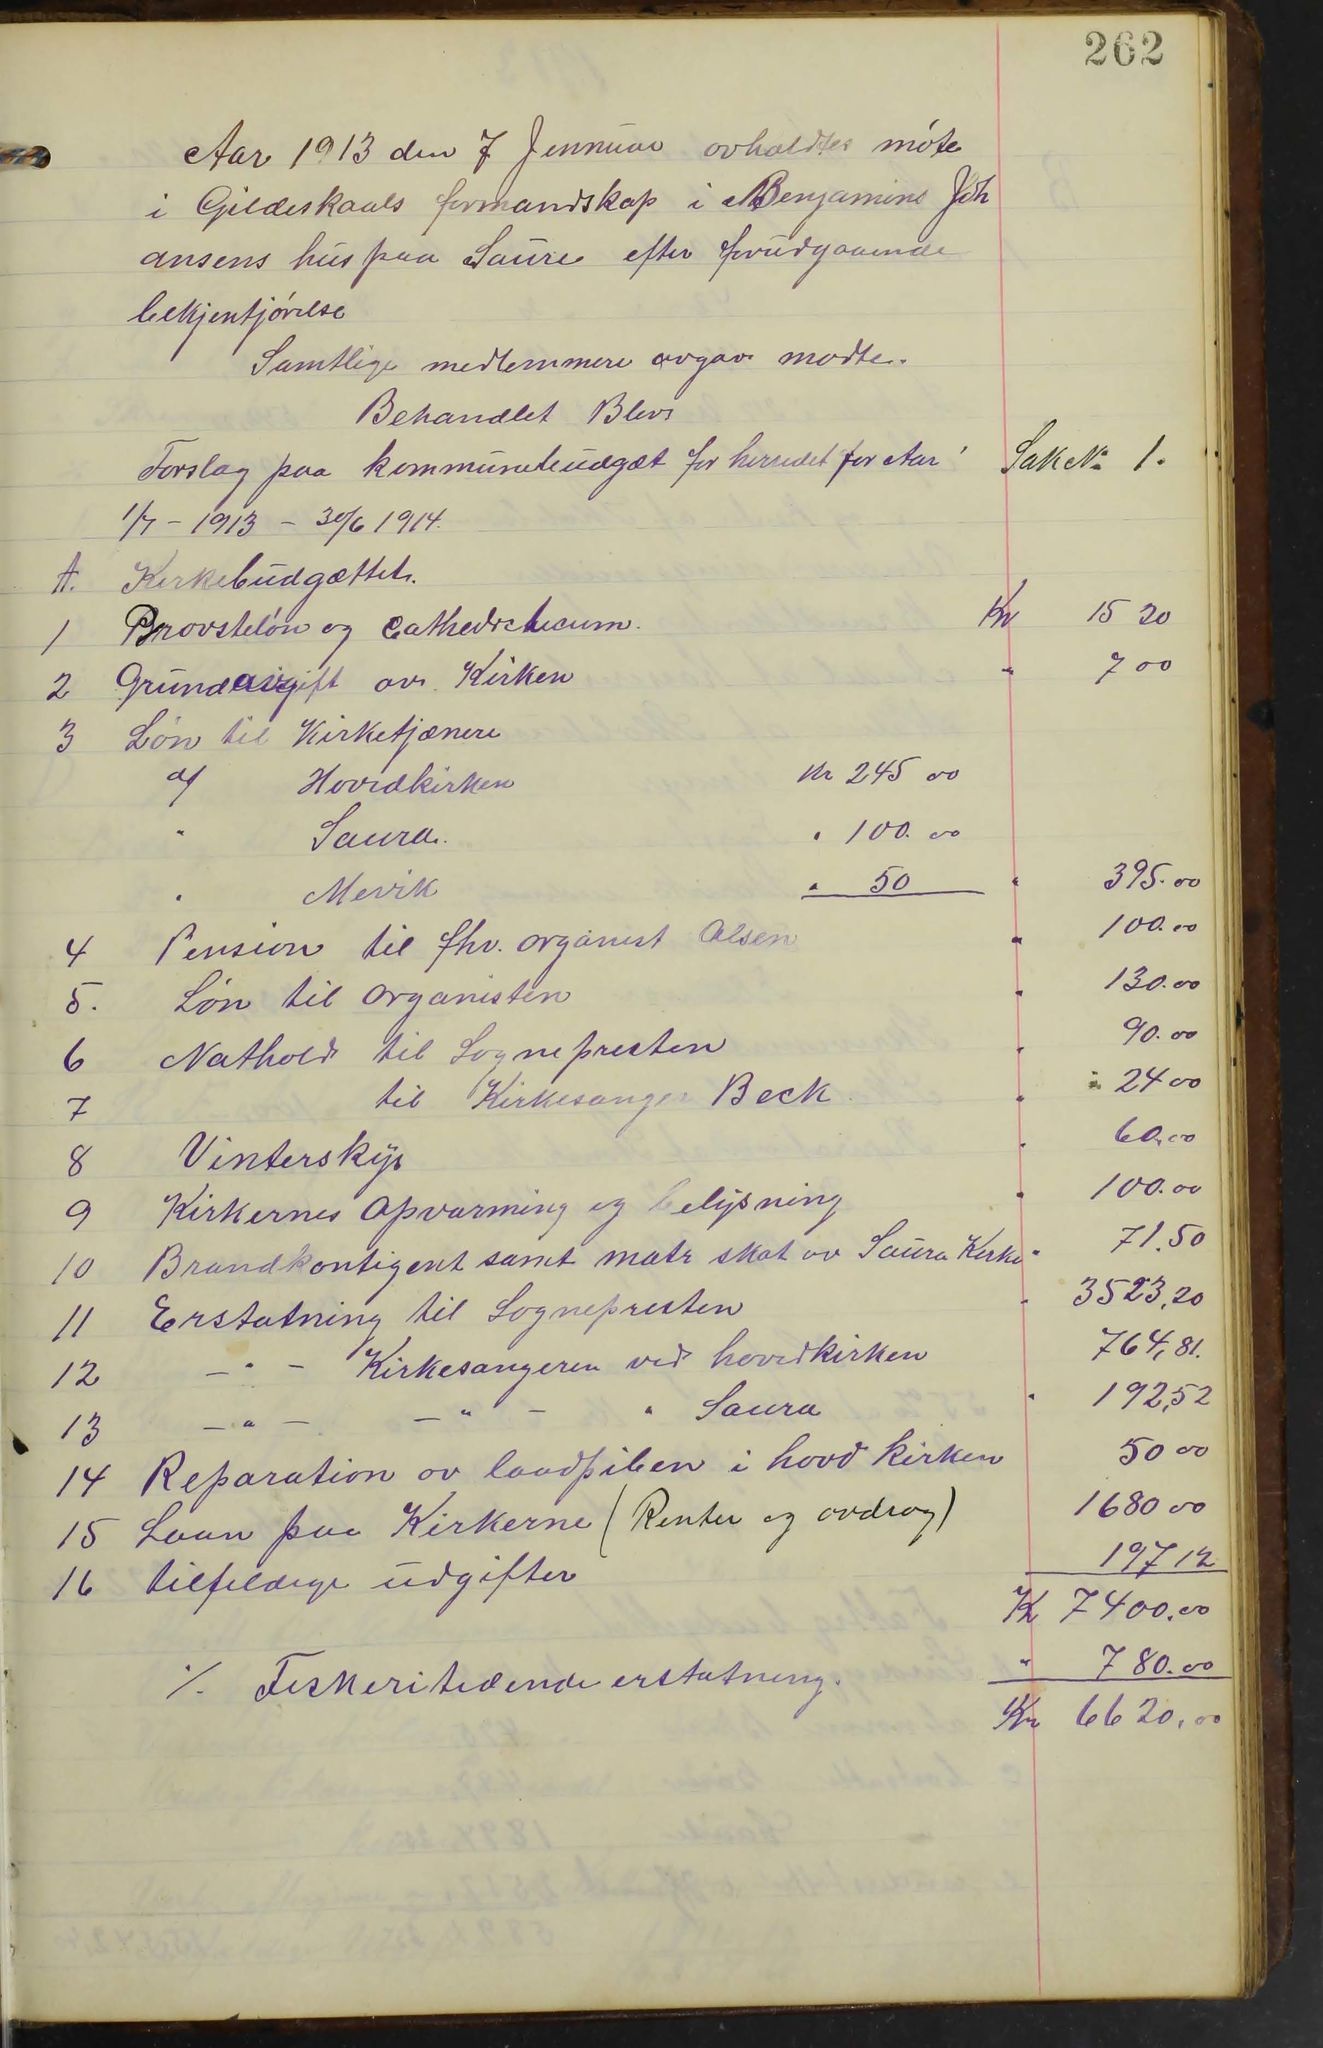 262
Aar 1913 den 7 Jennuar avholdtes møte
i Gildeskaals formandskap i Benjamins Joh
ansens hus paa Saure efter forudgaaende
bekjentjørelse
Samtlige medlemmere avgav mødte.
Behandlet Blev
Forslag paa kommunebudgæt for herredet for Aar Sak No 1.
1/7 - 1913 - 30/6 1914.
A. Kirkebudgættet.
1 Provsteløn og Cathedraticum. Kr 15 20
2 Grundavgift av Kirken " 7 00
3 Løn til Kirketjænere
a/ Hovedkirken Kr 245 00
" Saura. " 100.00
" Mevik " 50 " 395.00
4 Pension til fhv. organist Olsen " 100.00
5. Løn til organisten " 130.00
6 Nathold til Sognepresten " 90.00
7 til Kirkesanger Beck " 24 00
8 Vinterskys " 60,00
9 Kirkernes Opvarming og belysning " 100.00
10 Brandkontigent samt matr skat av Saura Kirke " 71.50
11 Erstatning til Sognepresten " 3523,20
12 - " - Kirkesangeren ved hovedkirken 764,81.
13 - " - - " - " Saura " 192,52
14 Reparation av i hovd kirken 50 00
15 Laan paa Kirkerne (Renter og avdrag) 1680 00
16 tilfeldige udgifter 197 12
Kr 7400.00
% Fiskeritiedende erstatning. " 780.00
Kr 6620,00